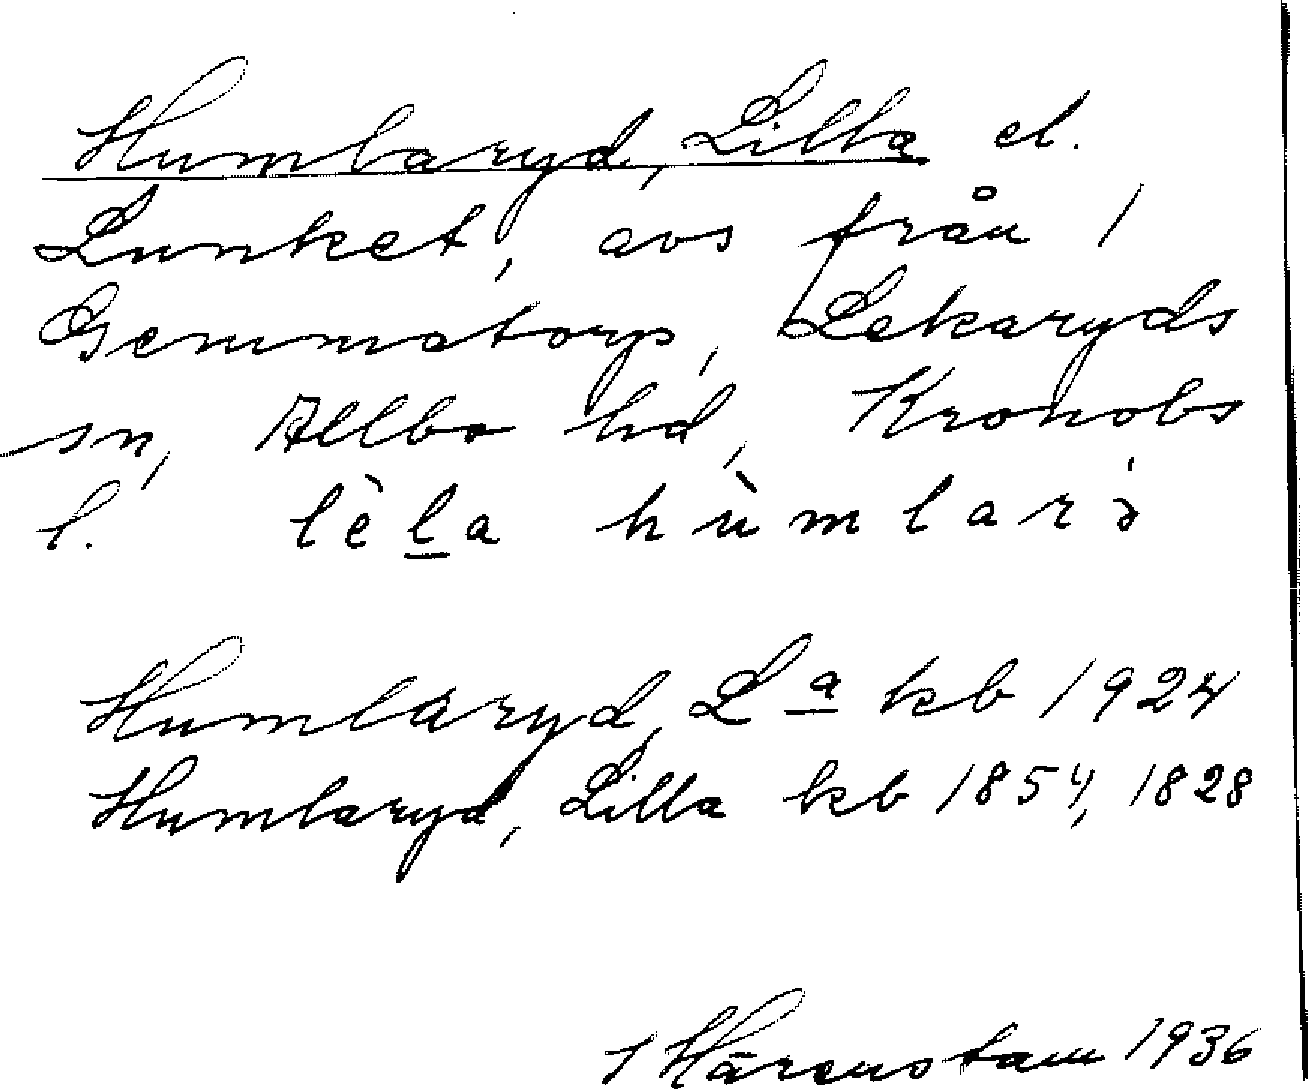 Humlaryd, Lilla el.
Lunket, avs från 1
Gemmatorp, Lekaryds
sn, Allbo hd, Kronobs
l. lèla hùmları̀
Humlaryd, La kb 1924
Humlaryd, Lilla kb 1854, 1828
I Härenstam 1936